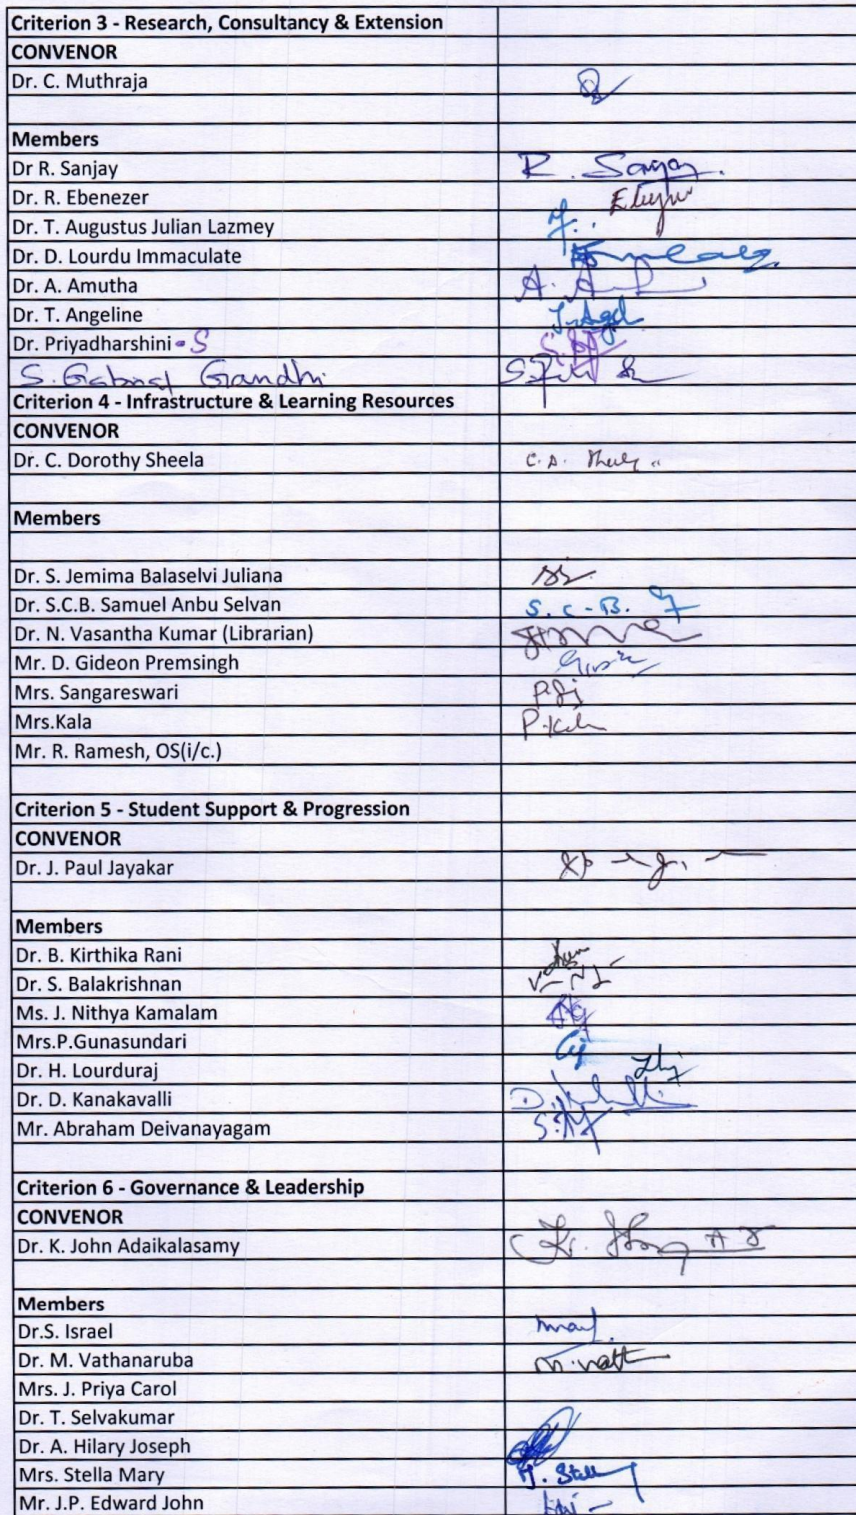 Criterion 3 - Research, Consultancy & Extension
CONVENOR
Dr. C. Muthraja
Members
Dr R. Sanjay R. Sanjay
Dr. R. Ebenezer
Dr. T. Augustus Julian Lazmey
Dr. D. Lourdu Immaculate
Dr. A. Amutha A.
Dr. T. Angeline
Dr. Priyadharshini • S
S. Gabriel Gandhi
Criterion 4 - Infrastructure & Learning Resources
CONVENOR
Dr. C. Dorothy Sheela C.D.
Members
Dr. S. Jemima Balaselvi Juliana
Dr. S.C.B. Samuel Anbu Selvan S.C.B.
Dr. N. Vasantha Kumar (Librarian)
Mr. D. Gideon Premsingh
Mrs. Sangareswari
Mrs.Kala
Mr. R. Ramesh, OS(i/c.)
Criterion 5 - Student Support & Progression
CONVENOR
Dr. J. Paul Jayakar
Members
Dr. B. Kirthika Rani
Dr. S. Balakrishnan
Ms. J. Nithya Kamalam
Mrs.P.Gunasundari
Dr. H. Lourduraj
Dr. D. Kanakavalli
Mr. Abraham Deivanayagam
Criterion 6 - Governance & Leadership
CONVENOR
Dr. K. John Adaikalasamy
Members
Dr.S. Israel
Dr. M. Vathanaruba
Mrs. J. Priya Carol
Dr. T. Selvakumar
Dr. A. Hilary Joseph
Mrs. Stella Mary
Mr. J.P. Edward John